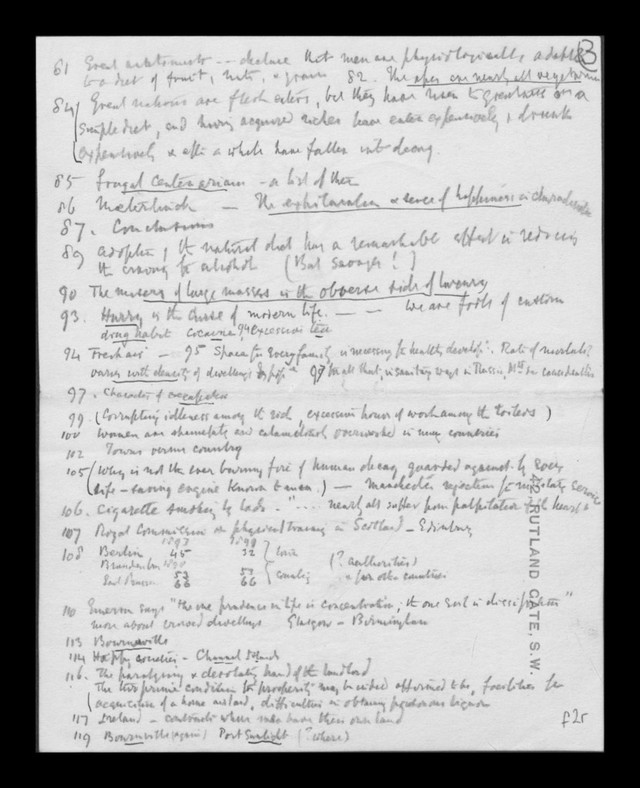 3
61 Great anatomists -- declare that men are physiologically adapted
to a diet of fruit, nuts, & grain 82. The apes are nearly all vegetarian
84 Great nations are flesh eaters, but they have risen to greatness on a
simple diet, and having acquired riches have eaten expensively & drunk
expensively & after a while have fallen into decay.
85 Frugal Centenarians - a list of them
86 Maeterlinck — The exhilaration & sense of happiness is characteristic
87. Conclusions
89 adoption of the natural diet has a remarkable effect in reducing
the craving for alcohol (But savages!)
90 The misery of large masses is the obverse side of luxury
93. Hurry is the curse of modern life. — — We are fools of custom
drug habit cocaine, 94 excessive tea
94 Fresh air — 95 Space for every family is necessary for healthy develop^t. Rate of mortality
varies with density of dwellings & pop^n 97 insanitary ways in Russia
97. Character of
99. (Corrupting idleness among the rich, excessive hours of work among the toilers)
100 Women are shamefully and calamitously overworked in many countries
102 Towns versus country
105 (Why is not the ever burning fire of human decay guarded against by every
life-saving engine known to man.) — Manchester rejection for military service
106. Cigarette smoking by lads. "... nearly all suffer from palpitation of the heart"
107 Royal Commission on physical training in Scotland - Edinburg
1893 1899
108 Berlin 45 32 } town
Brandenburg 1890 (? authorities)
East Prussia 53 53 } country & for other countries
66 66
110 Emerson says "the one prudence in life is concentration; the one evil is dissipation"
more about crowded dwellings Glasgow - Birmingham
113 Bournville
114 Happy countries - Channel Islands
116. The paralysing & desolating hand of the landlord
The two prime conditions for prosperity may be indeed affirmed to be, facilities for
acquisition of a home and land, difficulties in obtaining poisonous liquor
117 Ireland - contrasts where men have their own land
119 Bournville (again) Port Sunlight (? where)
42, RUTLAND GATE, S.W.
f2r